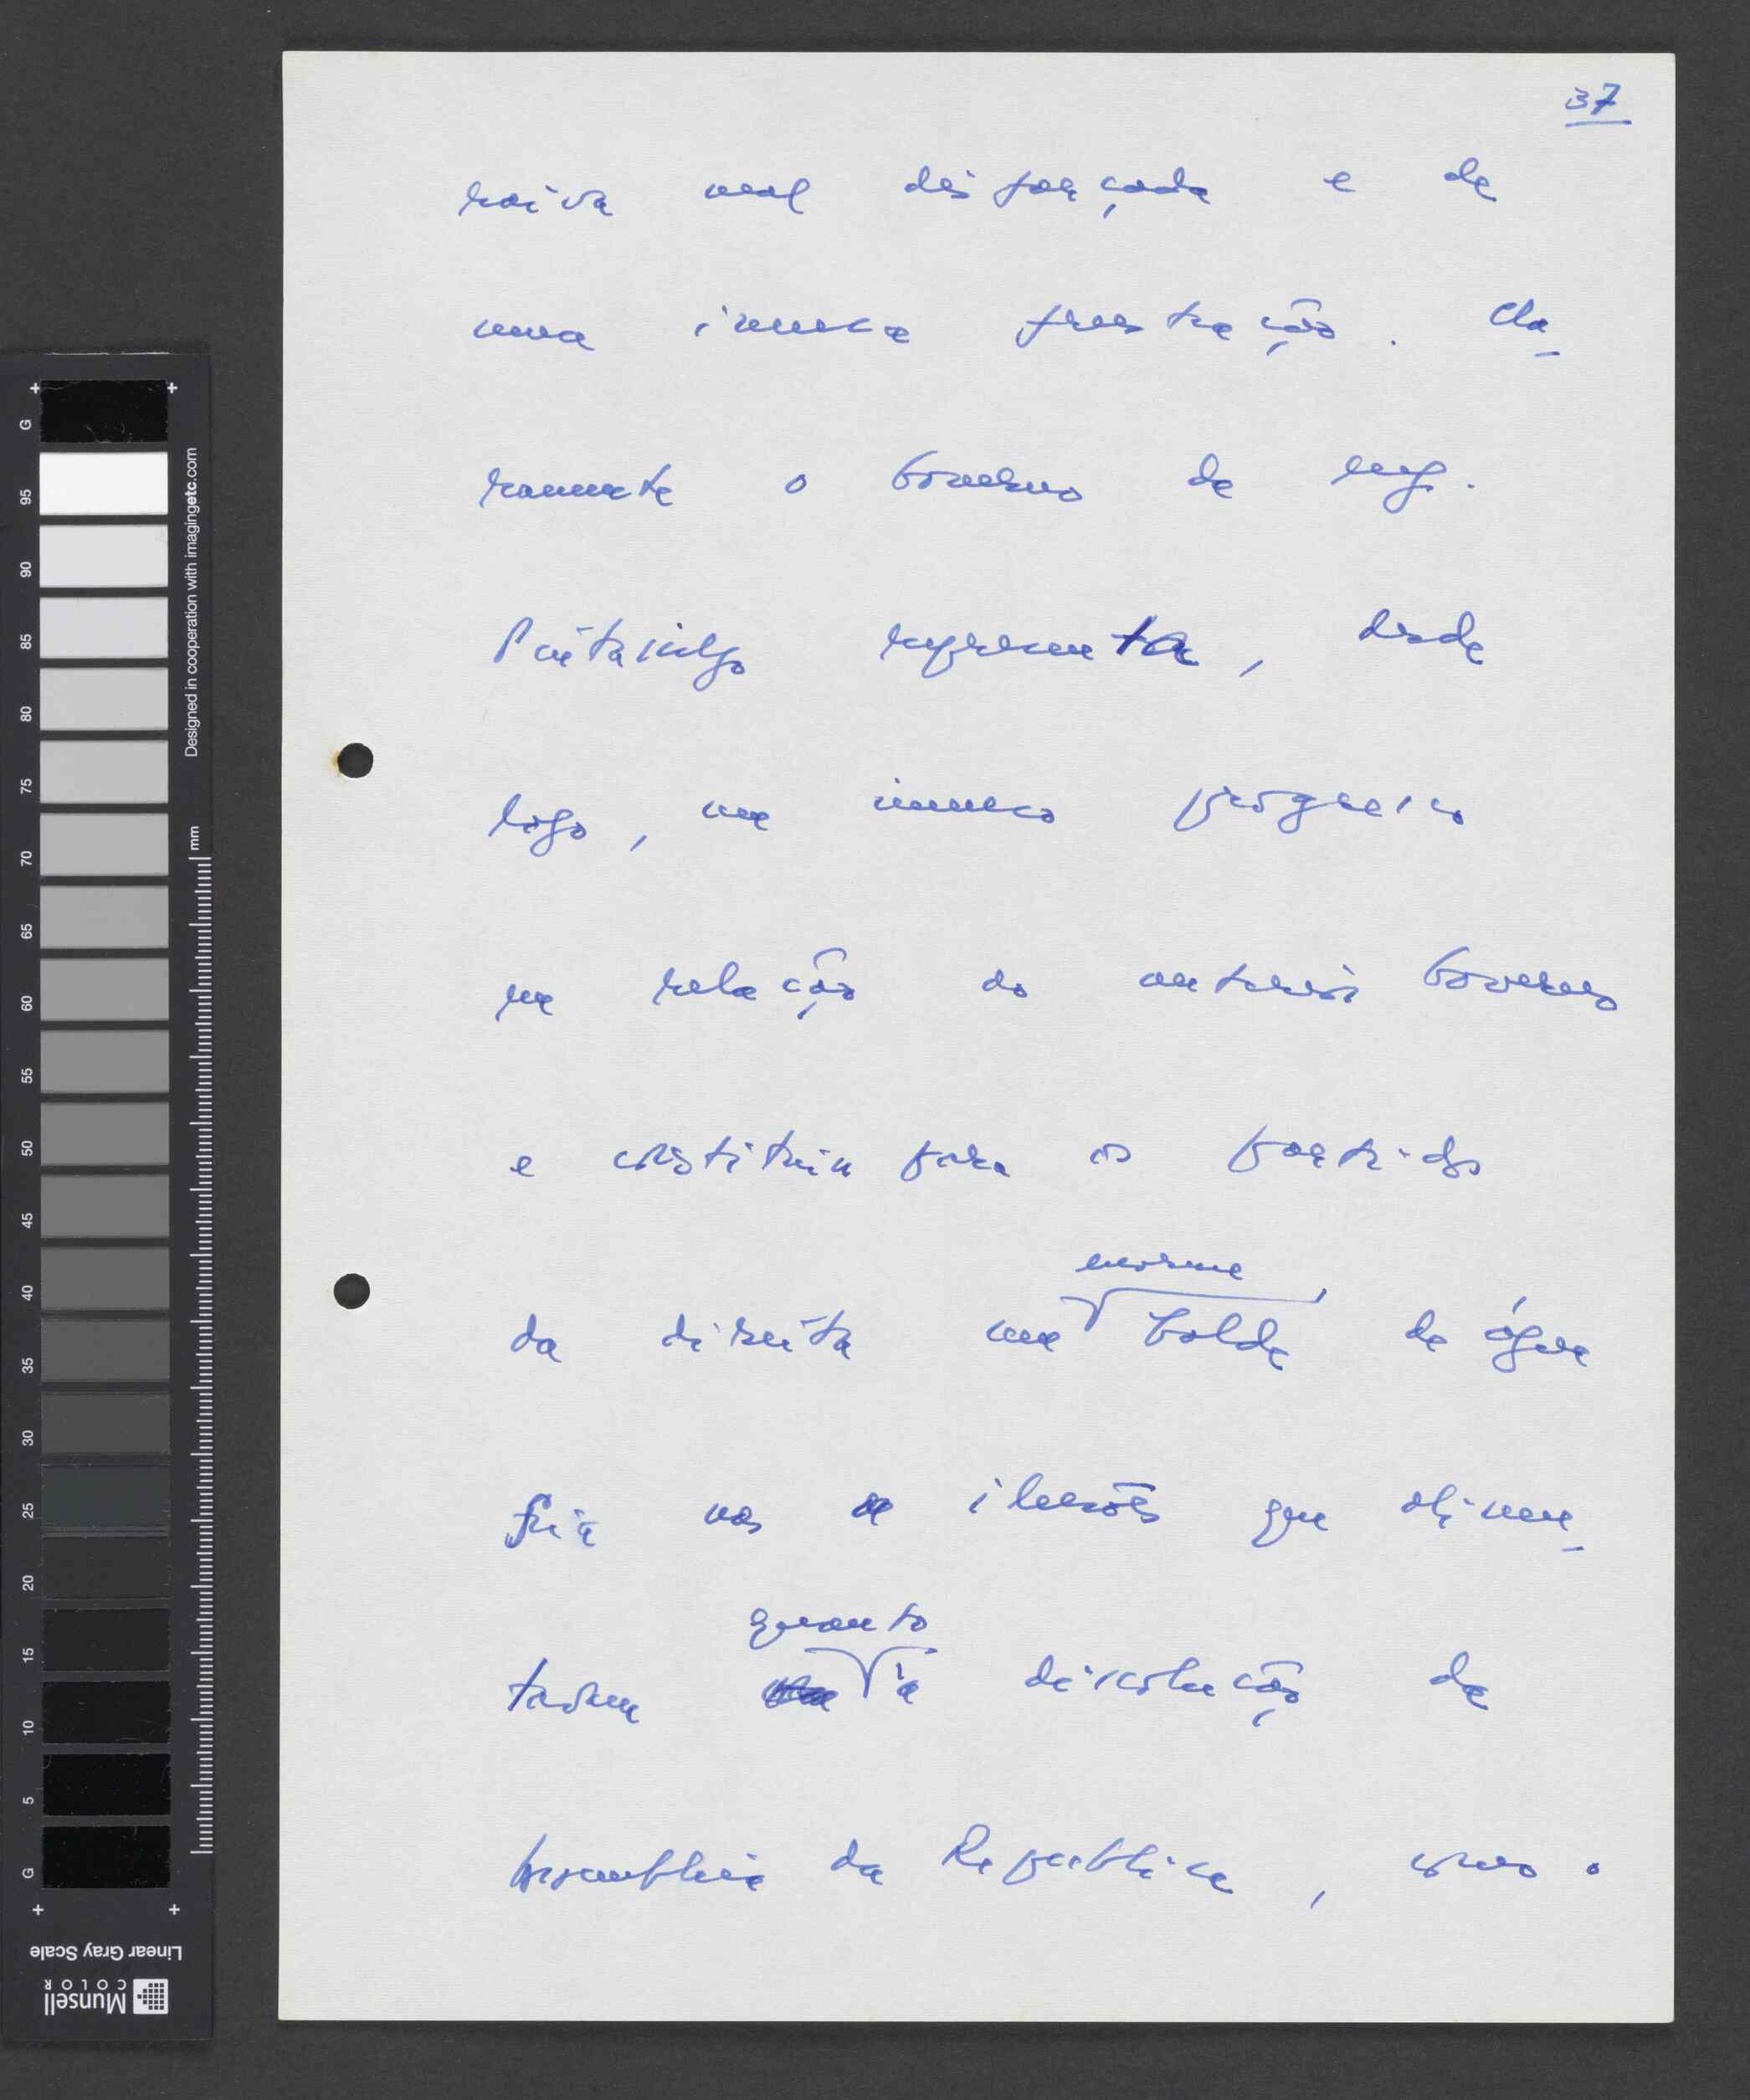 37
raiva mal disfarçada e de
uma imensa frustração. Cla-
ramente o Governo da engª.
Pintasilgo representa, desde
logo, um imenso progresso
em relação ao anterior Governo
e constituiu para os partidos
enorme
da direita um balde de água
fria nas ilusões que alimen-
quanto
tavam à dissolução da
Assembleia da República, como o
G
95
90
85
80
75
70
65
60
55
50
45
40
35
30
25
20
15
10
5
G
Designed in cooperation with imagingetc.com
mm
Linear Gray Scale
Munsell
COLOR